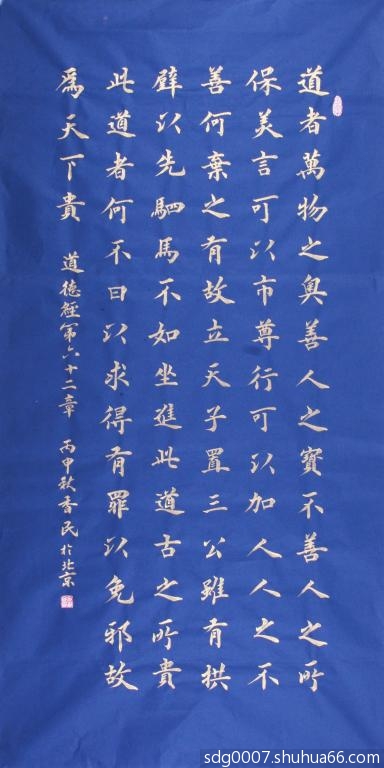 道者萬物之奥善人之寶不善人之所
保美言可以市尊行可以加人人之不
善何棄之有故立天子置三公雖有拱
璧以先駟馬不如坐進此道古之所貴
此道者何不曰以求得有罪以免邪故
爲天下貴 道德經第六十二章 丙申秋香民於北京
sdg0007.shuhua66.com